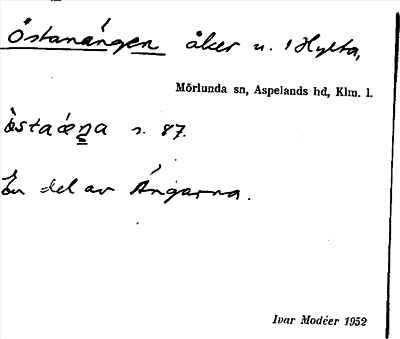 Östanängen åker u. Hylta,
Mörlunda sn, Aspelands hd, Klm. l.
s. 87.
En del av Ängarna.
Ivar Modéer 1952